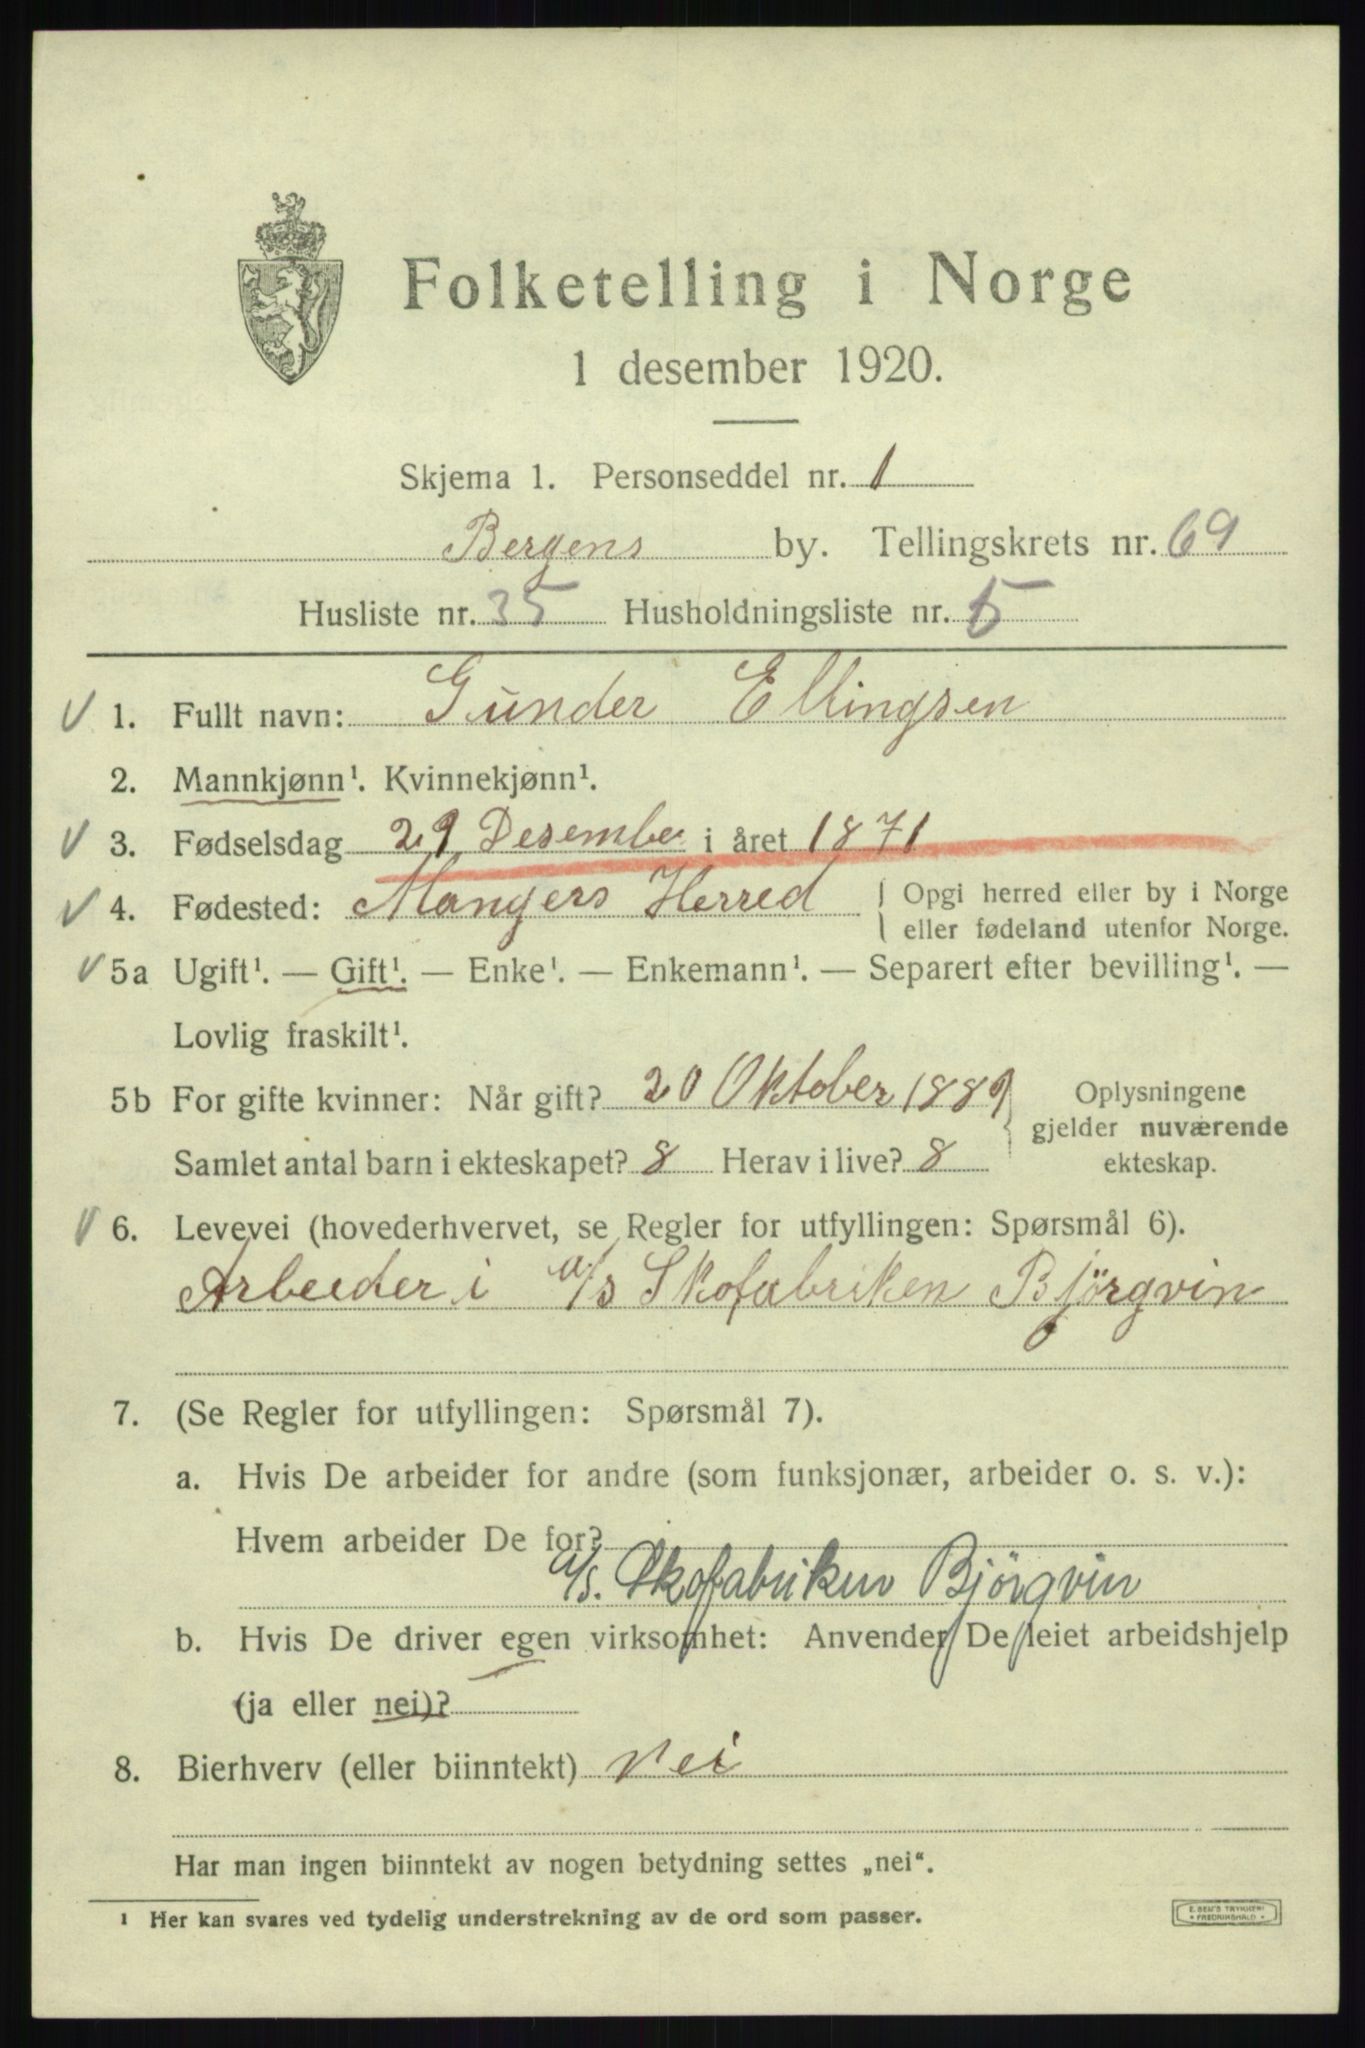 Folketelling i Norge
1 desember 1920.
Skjema 1. Personseddel nr. 1
Bergens by. Tellingskrets nr. 69
Husliste nr. 35 Husholdningsliste nr. 5
1. Fullt navn: Gunder Ellingsen
2. Mannkjønn¹. Kvinnekjønn¹.
3. Fødselsdag 29 Desembe i året 1871
4. Fødested: Mangers Herred { Opgi herred eller by i Norge
eller fødeland utenfor Norge.
5a Ugift¹. — Gift¹. — Enke¹. — Enkemann¹. — Separert efter bevilling¹. —
Lovlig fraskilt¹.
5b For gifte kvinner: Når gift? 20 Oktober 1889 } Oplysningene
gjelder nuværende
Samlet antal barn i ekteskapet? 8 Herav i live? 8 ekteskap.
6. Levevei (hovederhvervet, se Regler for utfyllingen: Spørsmål 6).
Arbeider i a/s Skofabriken Björgvin
7. (Se Regler for utfyllingen: Spørsmål 7).
a. Hvis De arbeider for andre (som funksjonær, arbeider o. s. v.):
Hvem arbeider De for?
a/s. Skofabriken Björgvin
b. Hvis De driver egen virksomhet: Anvender De leiet arbeidshjelp
(ja eller nei)?
8. Bierhverv (eller biinntekt) Nei
Har man ingen biinntekt av nogen betydning settes „nei“.
¹ Her kan svares ved tydelig understrekning av de ord som passer.
E. SEM'S TRYKKERI
FREDRIKSHALD